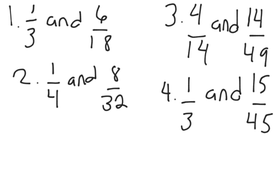 1. 1/3 and 6/18
2. 1/4 and 8/32
3. 4/14 and 14/49
4. 1/3 and 15/45